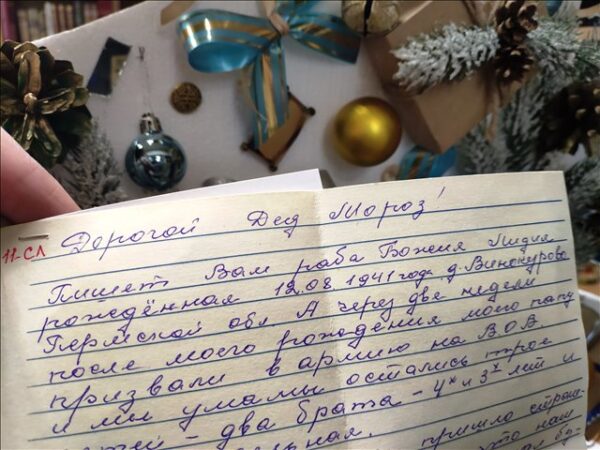 11-СЛ
Дорогой Дед Мороз!
Пишет Вам раба Божия Лидия
рождённая 12.08 1941 года д. Винокурово
Пермской обл. А через две недели
после моего рождения моего папу
призвали в армию на В.О.В.
и мы у мамы остались трое
детей - два брата - 4х и 3х лет и
пришло